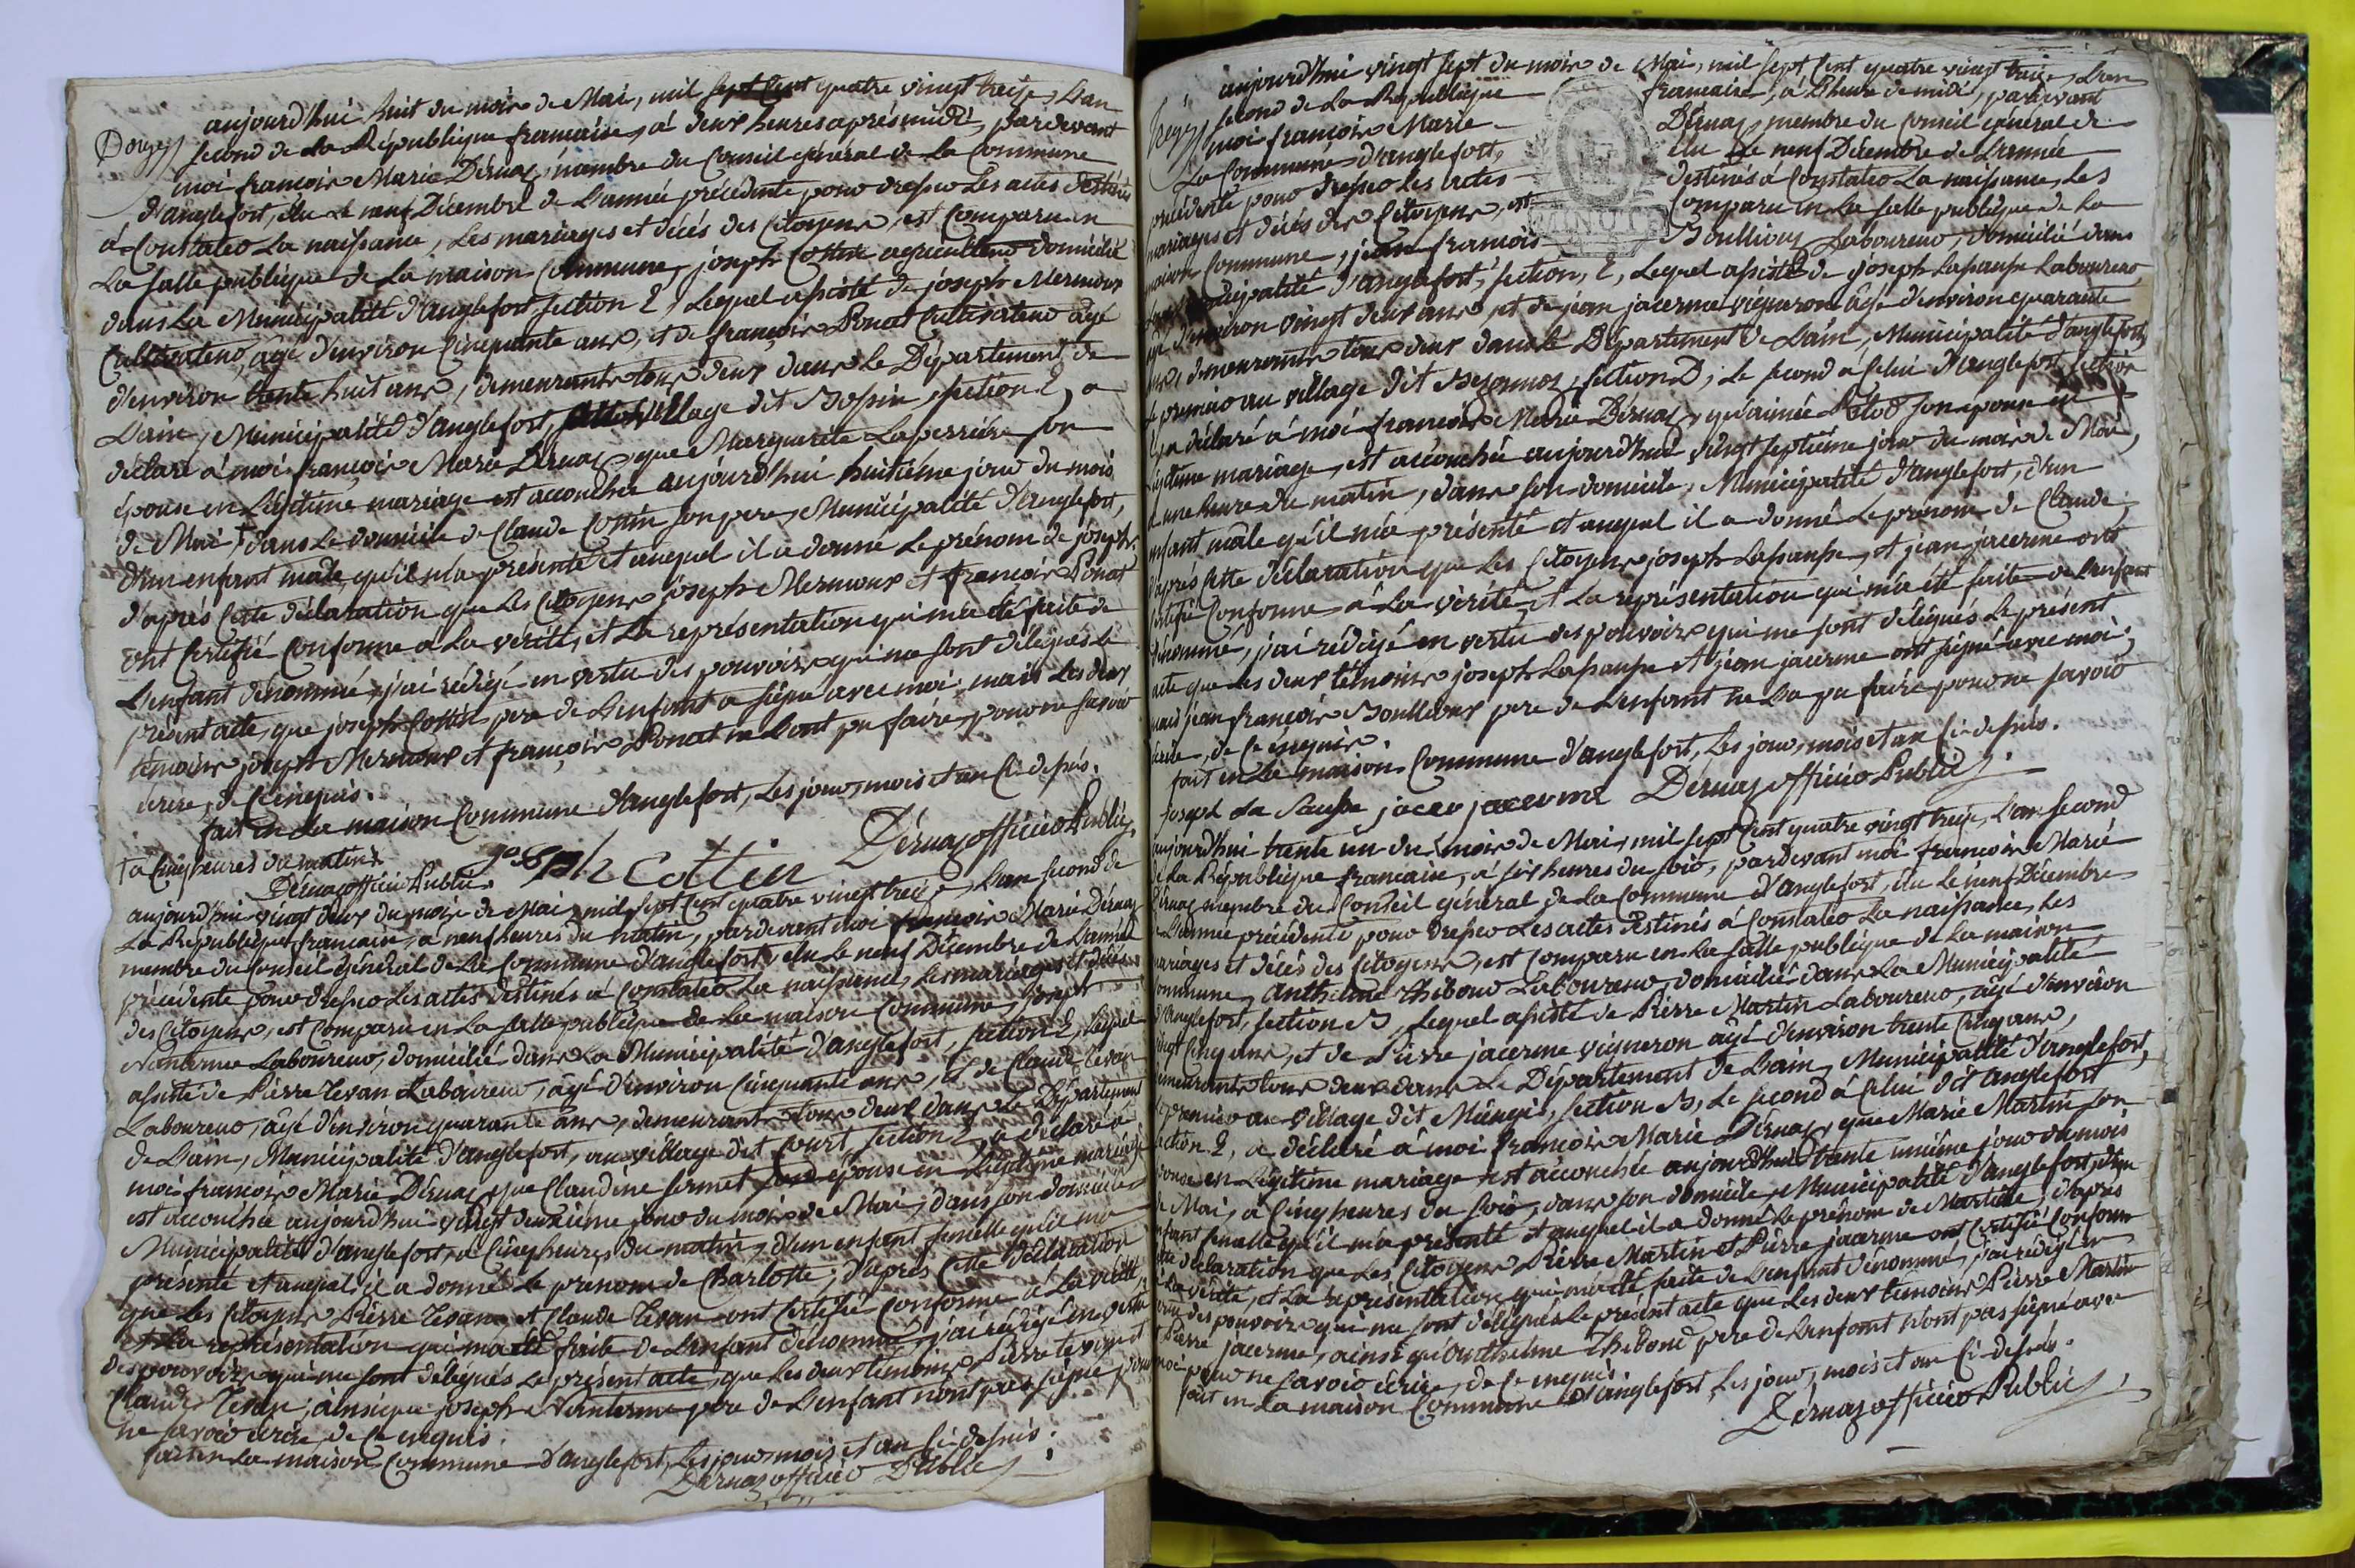 aujourd'hui huit du mois de Mai, mil sept Cent quatre vingt treize, L'an
second de La République francaise, à deux heures après midi, pardevant
moi francois Marie Dérnaz, membre du Conseil général de La Commune
d'anglefort, élu Le neuf Décembre de L'année précédente pour dresser Les actes destinés
à Constater La naissance, Les mariages et décès des Citoyens, est Comparu en
La salle publique de La maison Commune, joseph Cottin agriculteur domicilié
dans La Municipalité d'anglefort, section E, Lequel assisté de joseph Mermoux
Cultivateur, âgé d'environ Cinquante ans, et de francois Ponat Cultivateur âgé
d'environ trente huit ans, demeurants tous deux dans Le Département de
L'ain, Municipalité d'anglefort, village dit Bossin, section E, a
déclaré à moi francois Marie Dernaz, que Marguerite Laperrière son
épouse en Légitime mariage est accouchée aujourd'hui huitième jour du mois
de Mai † dans Le domicile de Claude Cottin son pere, Municipalité d'anglefort,
d'un enfant male, qu'il m'a présenté et auquel il a donné Le prénom de joseph,
d'après Cette déclaration que Les Citoyens joseph Mermoux et francois Ponat
ont Certifié Conforme à La vérité, et La représentation qui m'a été faite de
L'enfant dénommé, j'ai rédigé en vertu des pouvoirs qui me sont délégués Le
présent acte, que joseph Cottin pere de L'enfant a signé avec moi, mais Les deux
témoins joseph Mermoux et francois Ponat ne L'ont pu faire, pour ne savoir
écrire, de Ce enquis.
fait en La maison Commune d'anglefort, Les jour, mois et an Ci-dessus.
Dérnaz officier Public,
† a Cinq heures du matin
joseph Cottin
Dérnaz officier Public.
aujourd'hui vingt deux du mois de Mai, mil sept Cent quatre vingt treize, L'an second de
La République francaise, à neuf heures du matin, pardevant moi francois Marie Dérnaz
membre du Conseil général de La Commune d'anglefort, élu Le neuf Décembre de L'année
précédente pour dresser Les actes destinés à Constater La naissance, Les mariages et décès
des Citoyens, est Comparu en La salle publique de La maison Commune, joseph
Laboureur, domicilié dans La Municipalité d'anglefort, section E, Lequel
assisté de Pierre Levan Laboureur, âgé d'environ Cinquante ans, et de Claude Levan
Laboureur, âgé d'environ quarante ans, demeurant tous deux dans Le Département
de L'ain, Municipalité d'anglefort, au village dit Court, section E, a déclaré à
moi francois Marie Dérnaz, que Claudine fermet son épouse en Légitime mariage
est accouchée aujourd'hui vingt deuxième jour du mois de Mai, dans son domicile,
Municipalité d'anglefort, à Cinq heures du matin, d'un enfant femelle qu'il m'a
présenté et auquel il a donné Le prenom de Charlotte; d'après Cette déclaration
que Les Citoyens Pierre Levan et Claude Levan ont Certifié Conforme à La vérité,
et La représentation qui m'a été faite de L'enfant dénommé, j'ai rédigé en vertu
des pouvoirs qui me sont délégués Le présent acte, que Les deux témoins Pierre Levan et
Claude Levan, ainsi que joseph pere de L'enfant n'ont pas signé pour
ne savoir écrire, de Ce enquis.
fait en La maison Commune d'anglefort, Les jour, mois et an Ci-dessus.
Dérnaz officier Public
aujourd'hui vingt sept du mois de Mai, mil sept Cent quatre vingt treize, L'an
second de La République francaise, à L'heure de midi, pardevant
moi francois Marie Dérnaz, membre du Conseil général de
La Commune d'anglefort, élu Le neuf Décembre de L'année
précédente pour dresser Les actes destinés à Constater La naissance, Les
mariages et décès des Citoyens, est Comparu en La salle publique de La
maison Commune, jean francois Boullioux Laboureur, domicilié dans
La Municipalité d'anglefort, section, E, Lequel assisté de joseph Lasausse Laboureur
âgé d'environ vingt deux ans, et de jean jacerme vigneron âgé d'environ quarante
ans, demeurants tous deux dans Le Département de L'ain, Municipalité d'anglefort,
Le premier au village dit , section D, Le second à Celui d'anglefort, section
E, a déclaré à moi francois Marie Dérnaz, qu'aimée son épouse en
Légitime mariage, est accouchée aujourd'hui vingt septième jour du mois de Mai,
à une heure du matin, dans son domicile, Municipalité d'anglefort, d'un
enfant mâle qu'il m'a présenté et auquel il a donné Le prenom de Claude;
d'après Cette déclaration que Les Citoyens joseph Lasausse, et jean jacerme ont
Certifié Conforme à La vérité, et La représentation qui m'a été faite de L'enfant
dénommé, j'ai rédigé en vertu des pouvoirs qui me sont délégués Le présent
acte que Les deux témoins joseph Lasausse et jean jacerme ont signé avec moi,
mais jean francois Boullioux pere de L'enfant ne L'a pu faire pour ne savoir
écrire, de Ce enquis.
fait en La maison Commune d'anglefort, Les jour, mois et an Ci-dessus.
joseph La Sausse jacerme Dérnaz officier Public.
aujourd'hui trente un du mois de Mai, mil sept Cent quatre vingt treize, L'an second
de La République francaise, à six heures du soir, pardevant moi francois Marie
Dérnaz membre du Conseil général de La Commune d'anglefort, élu Le neuf Décembre
de L'année précédente pour dresser Les actes destinés à Constater La naissance, Les
mariages et décès des Citoyens, est Comparu en La salle publique de La maison
Commune, Anthelme Thiboud Laboureur, domicilié dans La Municipalité
d'anglefort, section B, Lequel assisté de Pierre Martin Laboureur, âgé d'environ
vingt Cinq ans, et de Pierre jacerme vigneron âgé d'environ trente Cinq ans,
demeurants tous deux dans Le Département de L'ain, Municipalité d'anglefort,
Le premier au village dit , section B, Le second à Celui dit anglefort
section E, a déclaré à moi francois Marie Dérnaz, que Marie Martin son
épouse en Légitime mariage est accouchée aujourd'hui trente unième jour du mois
de Mai, à Cinq heures du soir, dans son domicile, Municipalité d'anglefort, d'un
enfant femelle qu'il m'a présenté et auquel il a donné Le prénom de , d'après
Cette déclaration que Les Citoyens Pierre Martin et Pierre jacerme ont Certifié Conforme
à La vérité, et La représentation qui m'a été faite de L'enfant dénommé, j'ai rédigé en
vertu des pouvoirs qui me sont délégués Le présent acte que Les deux témoins Pierre Martin
et Pierre jacerme, ainsi qu'anthelme Thiboud pere de L'enfant n'ont pas signé avec
moi pour ne savoir écrire, de Ce enquis.
fait en La maison Commune d'anglefort, Les jour, mois et an Ci-dessus.
Dérnaz officier Public,